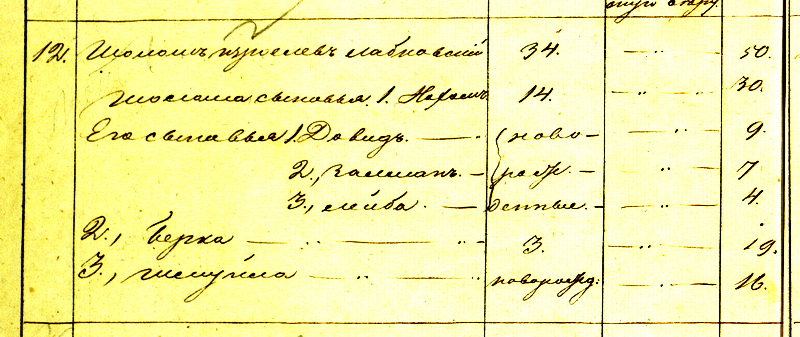 12. Шоломъ Израелевъ Лабковскій 34. — " — 50.
Шолома сыновья 1. Нохемъ 14. — " — 30.
Его сыновья 1. Довидъ. — ново- — " — 9.
2., Залманъ. — рож- — " — 7
3., Лейба. — денные. — " — 4.
2., Берка — " — " — 3. — " — 19.
3., — " — новорожд: — " — 16.